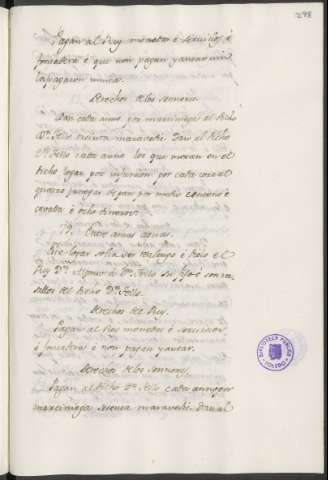 298
Pagan al Rey monedas è servicios è
fonsadera è que non pagan yantar nin
la pagaron nunca.
Derechos de los sennores.
Dan cada anno por martiniega al dicho
Dn. Tello treinta maravedis. Dan al dicho
Dn. Tello cada anno los que moran en el
dicho logar por infurcion por cada solar
quatro fanegas de pan por medio centeno è
cevada è ocho dineros.
Entre amas aguas.
Este logar solia ser realengo è diolo el
Rey Dn. Alfonso à Dn. Tello su fijo è son va-
sallos del dicho Dn. Tello.
Derechos del Rey.
Pagan al Rey monedas è servicios
è fonsadera è non pagan yantar.
Derechos de los sennores.
Pagan al dicho Dn. Tello cada anno por
martiniega maravedis. Dan al
BIBLIOTECA PUBLICA
TOLEDO